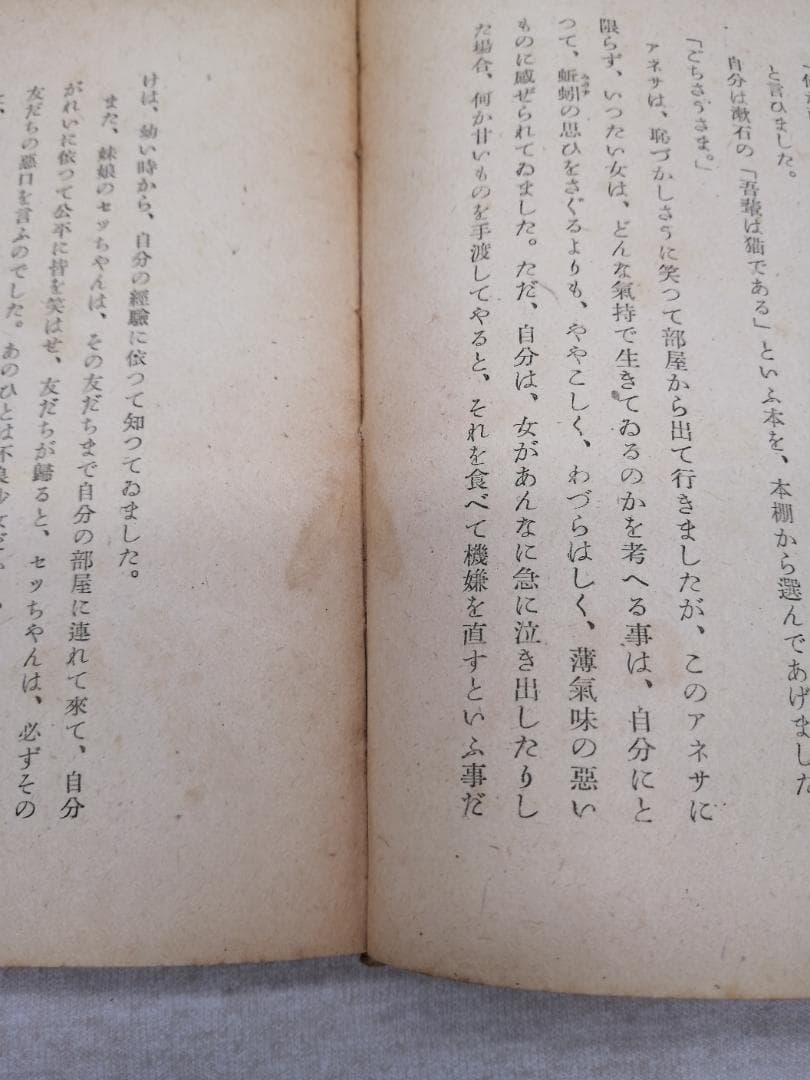 と言ひました。
自分は漱石の「吾輩は猫である」といふ本を、本棚から選んであげました
「ごちさうさま。」
アネサは、恥づかしさうに笑つて部屋から出て行きましたが、このアネサに
限らず、いつたい女は、どんな氣持で生きてゐるのかを考へる事は、自分にと
つて、蚯蚓の思ひをさぐるよりも、ややこしく、わづらはしく、薄氣味の惡い
ものに感ぜられてゐました。ただ、自分は、女があんなに急に泣き出したりし
た場合、何か甘いものを手渡してやると、それを食べて機嫌を直すといふ事だ
けは、幼い時から、自分の經驗に依つて知つてゐました。
また、妹娘のセッちやんは、その友だちまで自分の部屋に連れて來て、自分
がれいに依つて公平に皆を笑はせ、友だちが歸ると、セッちやんは、必ずその
友だちの惡口を言ふのでした。あのひとは不良少女だ